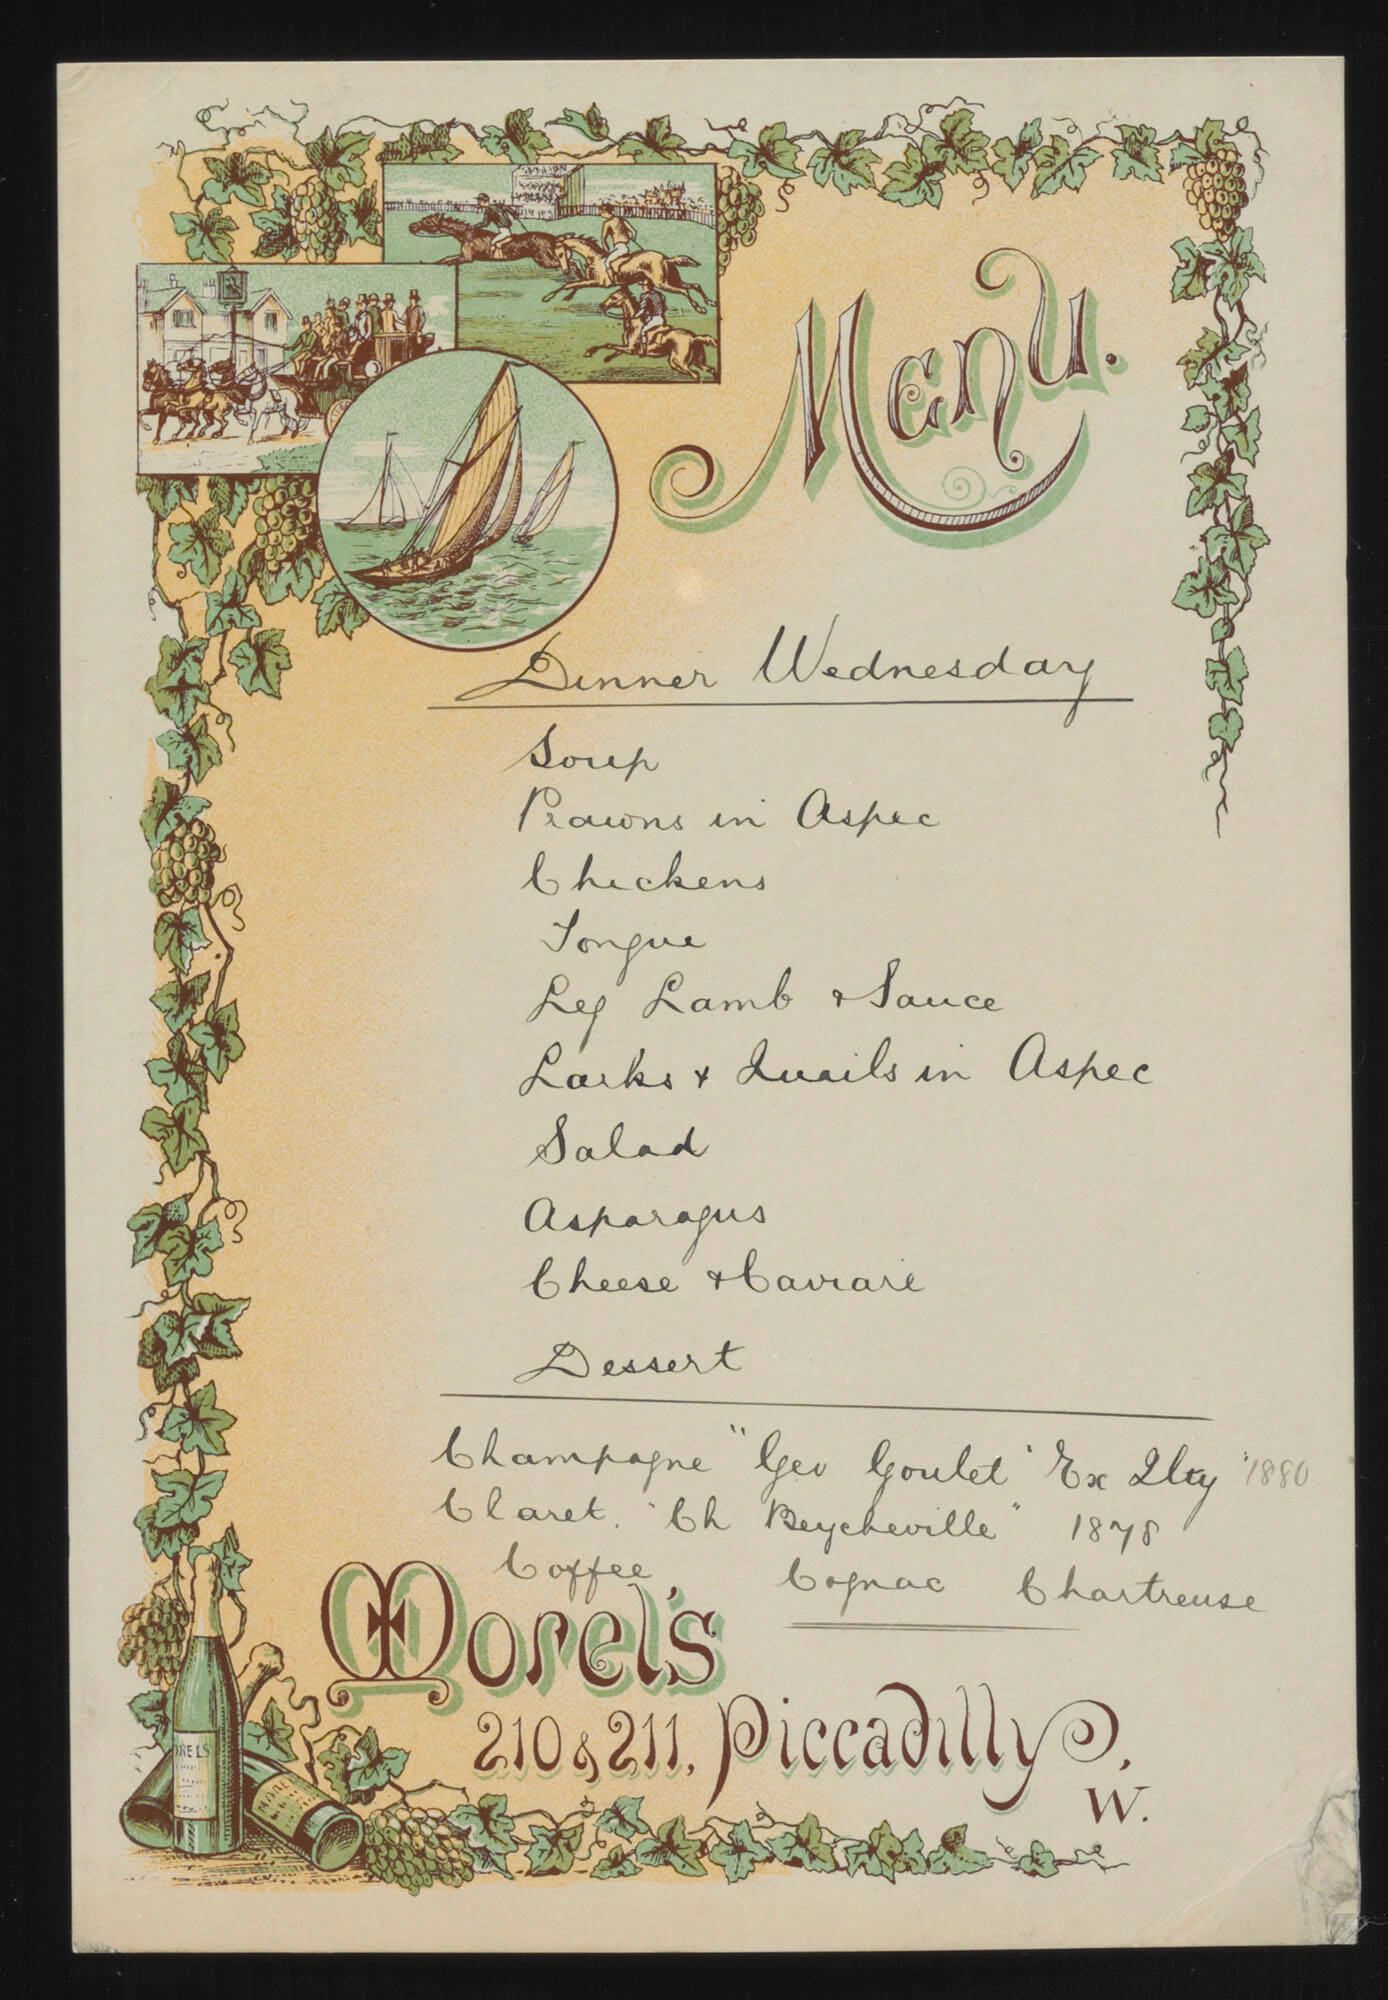 Menu.
Dinner Wednesday
Soup
Prawns in Aspec
Chickens
Tongue
Leg Lamb & Sauce
Larks & Quails in Aspec
Salad
Asparagus
Cheese & Caviare
Dessert
Champagne "Geo Goulet" Ex Qlty "1880
Claret. "Ch Beycheville" 1878
Coffee Cognac Chartreuse
Morel's
210 & 211, Piccadilly,
W.